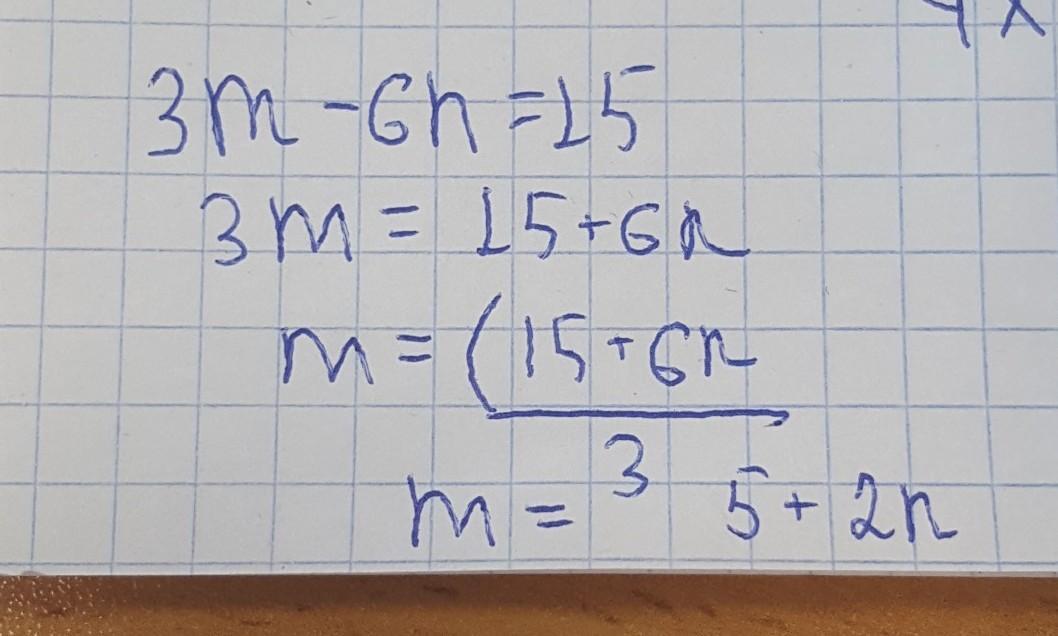 3m - 6n = 15
3m = 15 + 6n
m = (15 + 6n
3
m = 5 + 2n